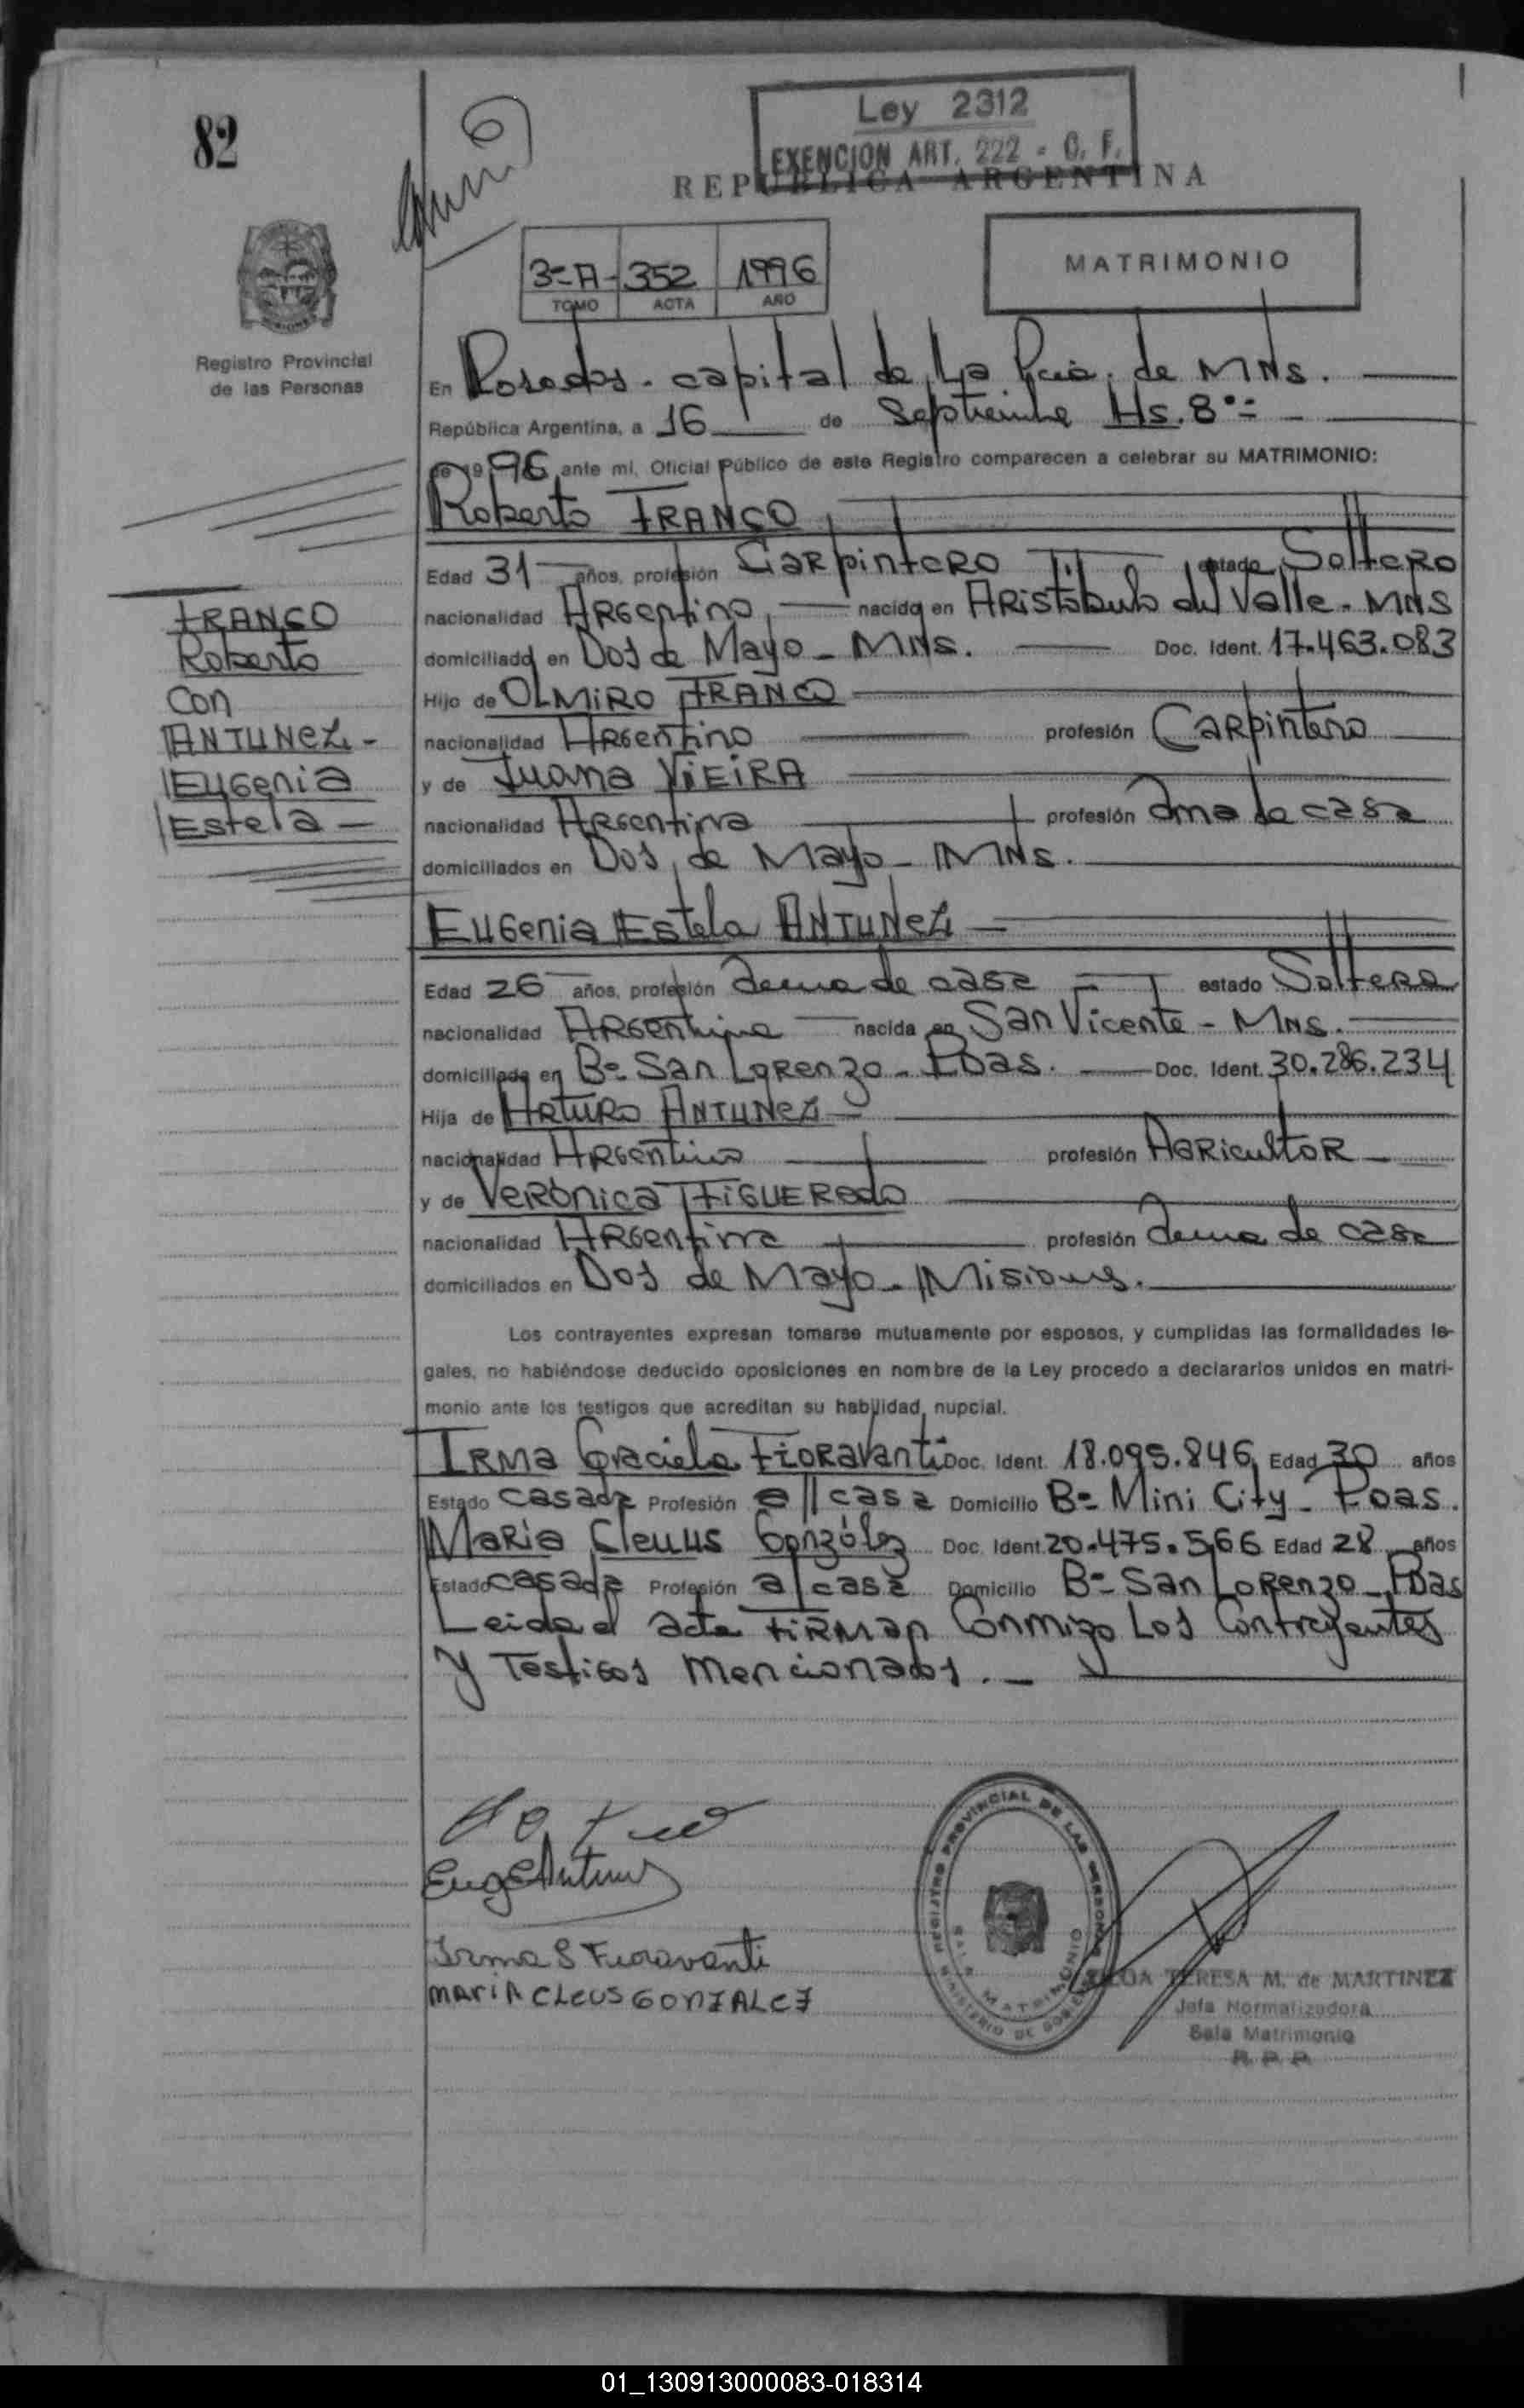 82
Ley 2312
EXENCION ART. 222 - C. F.
REPUBLICA ARGENTINA
3º-A- 352 1996
TOMO ACTA AÑO
MATRIMONIO
Registro Provincial
de las Personas
En Posadas - capital de La Pcia. de MNs.
República Argentina, a 16 de Septiembre Hs. 8
de 19 96 ante mí, Oficial Público de este Registro comparecen a celebrar su MATRIMONIO:
Roberto FRANCO
Edad 31 años, profesión Carpintero estado Soltero
nacionalidad Argentino nacido en Aristóbulo del Valle - MNS
domiciliado en Dos de Mayo - MNs. Doc. Ident. 17.463.083
Hijo de OLMIRO FRANCO
nacionalidad Argentino profesión Carpintero
y de Juana VIEIRA
nacionalidad Argentina profesión Ama de casa
domiciliados en Dos de Mayo - MNs.
FRANCO
Roberto
Con
ANTUNEZ -
Eugenia
Estela -
Eugenia Estela ANTUNEZ -
Edad 26 años, profesión ama de casa estado Soltera
nacionalidad Argentina nacida en San Vicente - MNs.
domiciliada en Bº San Lorenzo - Pdas. Doc. Ident. 30.286.234
Hija de Arturo ANTUNEZ
nacionalidad Argentino profesión Agricultor
y de Verónica FIGUEREDO
nacionalidad Argentina profesión ama de casa
domiciliados en Dos de Mayo - Misiones.
Los contrayentes expresan tomarse mutuamente por esposos, y cumplidas las formalidades le-
gales, no habiéndose deducido oposiciones en nombre de la Ley procedo a declararlos unidos en matri-
monio ante los testigos que acreditan su habilidad nupcial.
Irma Graciela Fioravanti Doc. Ident. 18.095.846 Edad 30 años
Estado casada Profesión a/casa Domicilio Bº Mini City - Pdas.
Maria Cleuus González Doc. Ident. 20.475.566 Edad 28 años
Estado casada Profesión a/casa Domicilio Bº San Lorenzo - Pdas
Leida el acta firman Conmigo Los Contrayentes
y Testigos mencionados. -
Eug E Antunez
Irma G Fioravanti
MARIA CLEUS GONZALEZ
REGISTRO PROVINCIAL DE LAS PERSONAS
MINISTERIO DE GOBIERNO
SALA MATRIMONIO
TERESA M. de MARTINEZ
Jefa Normalizadora
Sala Matrimonio
R. P. P.
01_130913000083-018314